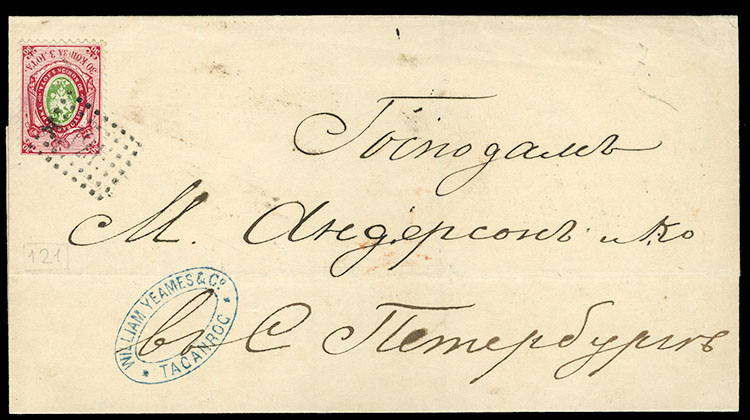 30 КОП. ЗА 3 ЛОТА
Господамъ
М. Андерсонъ и Ко
въ С Петербургъ
121
WILLIAM YEAMES & Co.
* TAGANROG *